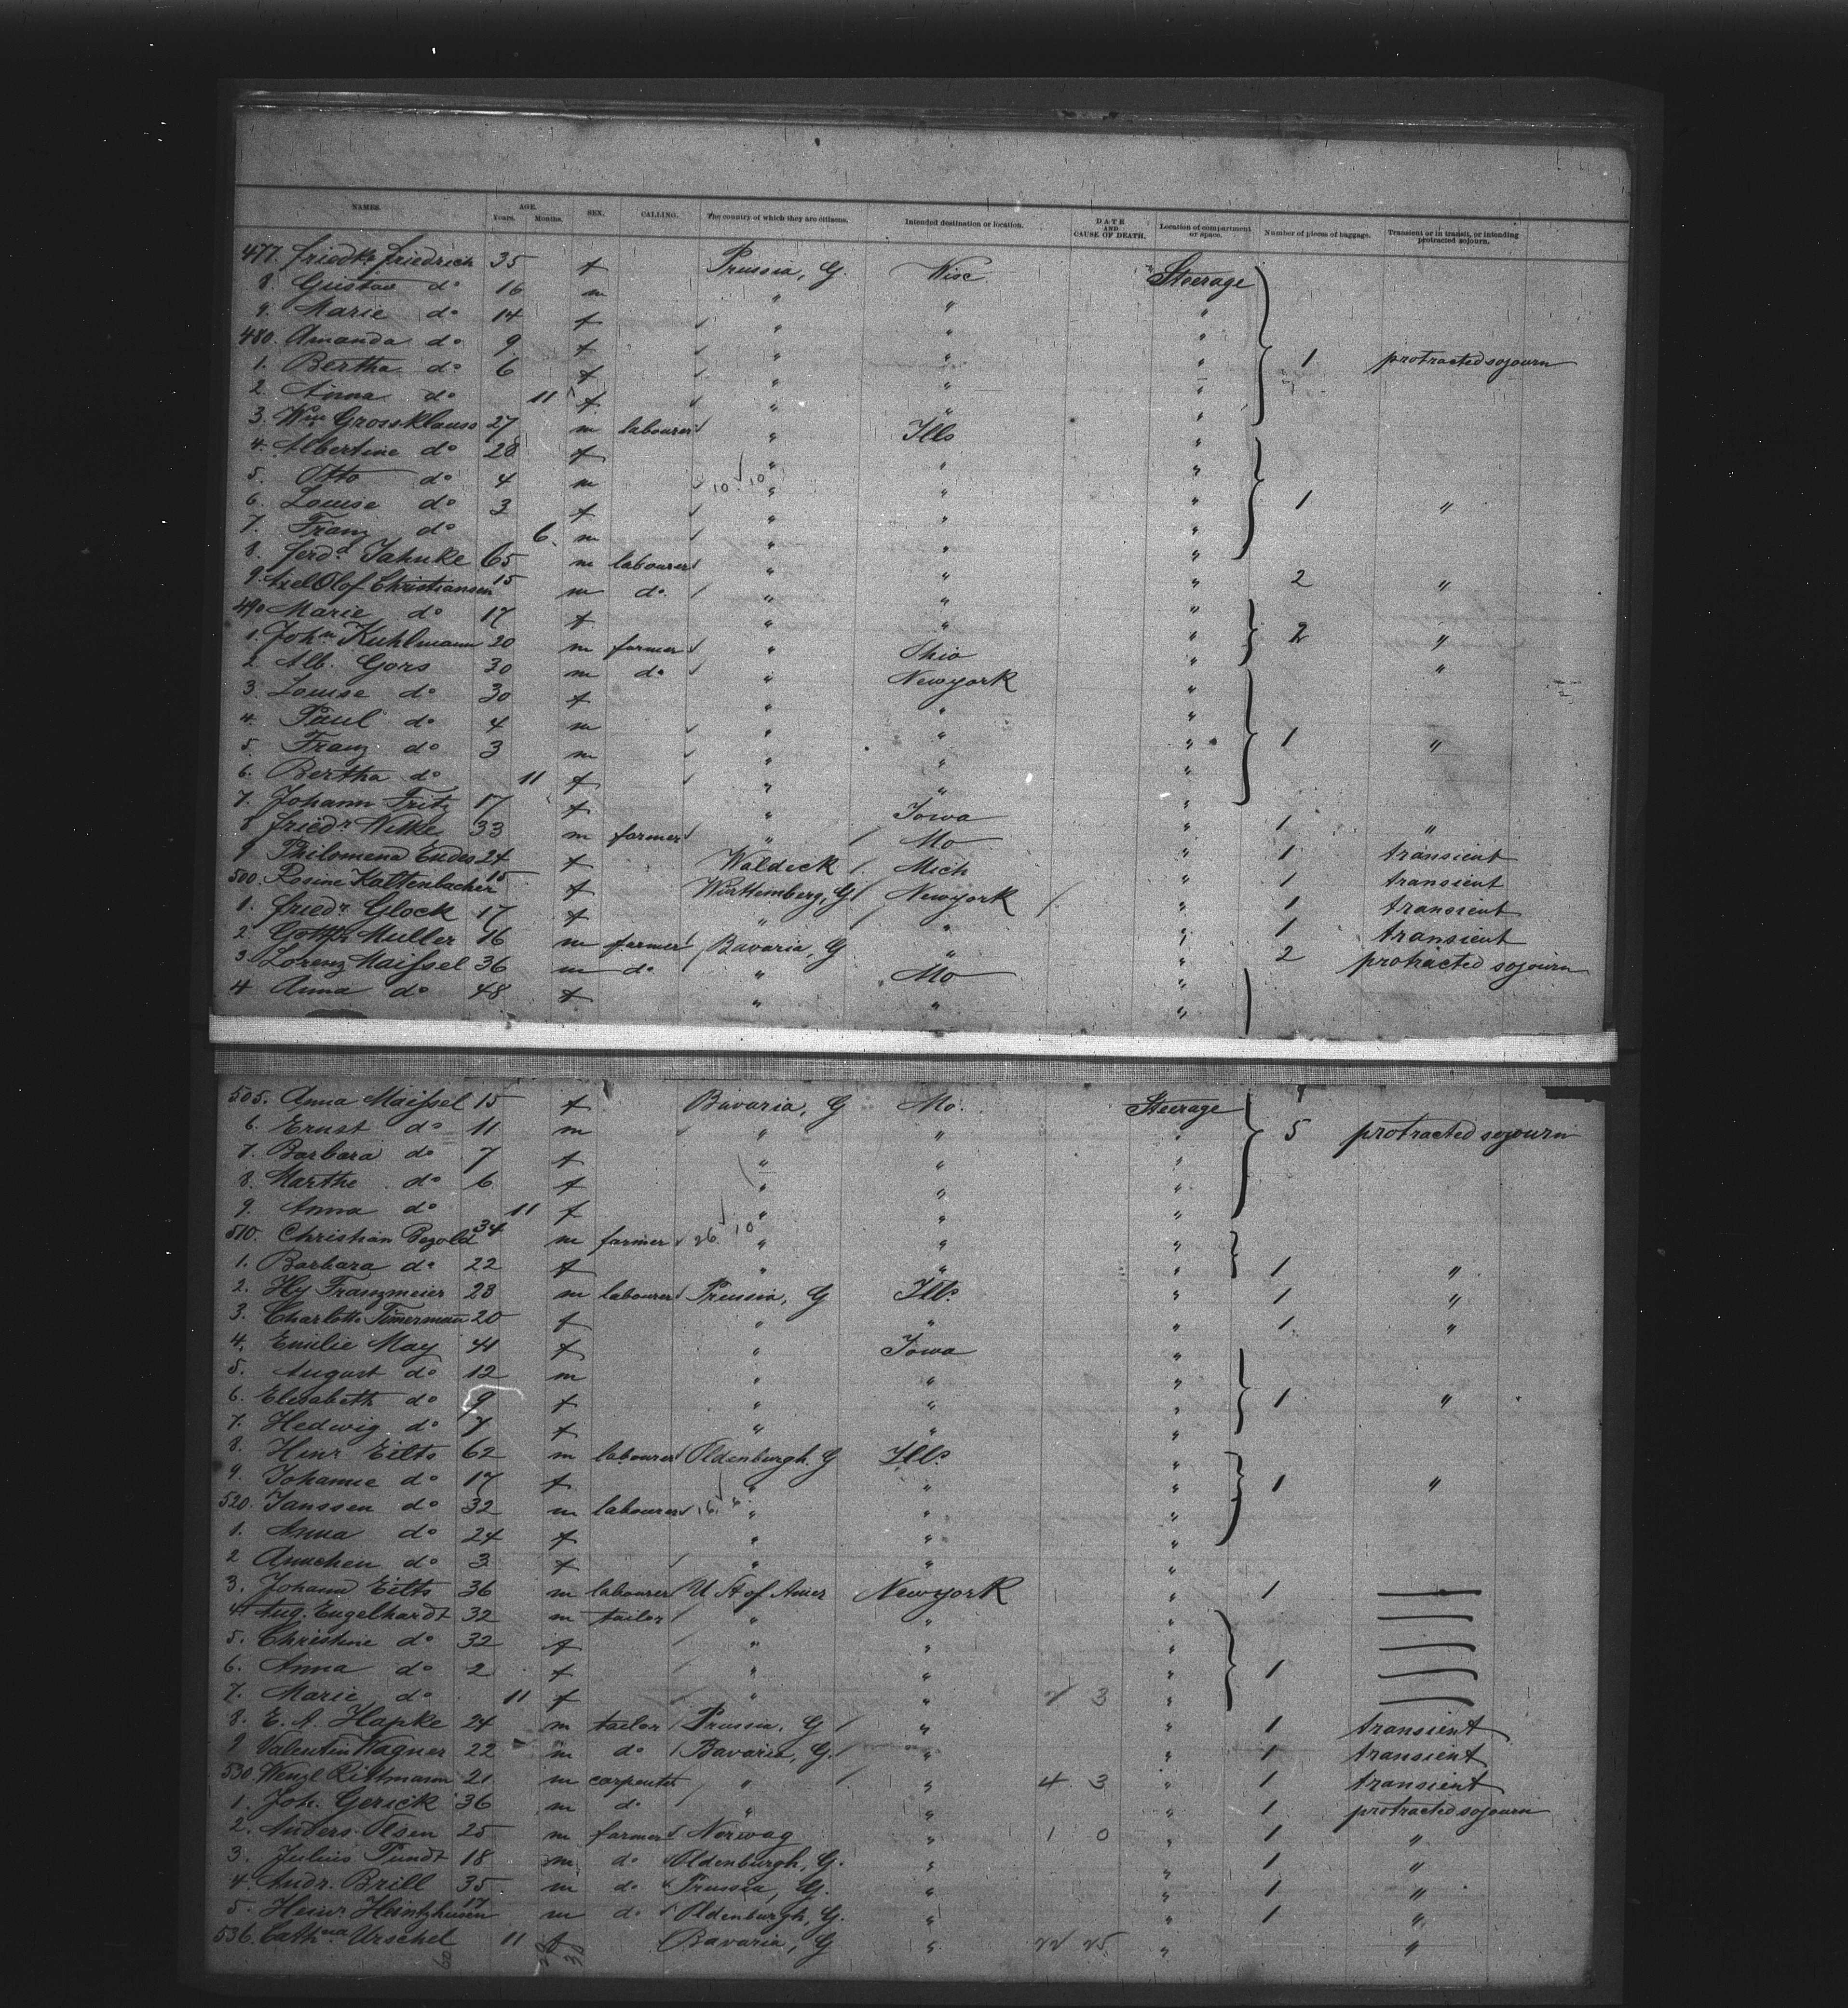 NAMES. AGE. Years. Months. SEX. CALLING. The country of which they are citizens. Intended destination or location. DATE AND CAUSE OF DEATH. Location of compartment or space. Number of pieces of baggage. Transient or in transit, or intending protracted sojourn.
477. Friedke Friedrich 35 f Prussia, G. Wisc Steerage
8. Gustav do 16 m " " "
9. Marie do 14 f " " "
480. Amanda do 9 f " " " 1 protracted sojourn
1. Bertha do 6 f " " "
2. Anna do 11 f " " "
3. Wm Grossklauss 27 m labourer " Ills "
4. Albertine do 28 f " " "
5. Otto do 4 m 10 10 " " "
6. Louise do 3 f " " " 1 "
7. Franz do 6. m " " "
8. Ferdd Jahnke 65 m labourer " " " 2 "
9. Axel Olof Christiansen 15 m do. " " "
490 Marie do 17 f " " " 2 "
1. John Kuhlmann 20 m farmer " Ohio " "
2. Alb. Gors 30 m do " Newyork "
3. Louise do 30 f " " "
4. Paul do 4 m " " " 1 "
5. Franz do 3 m " " "
6. Bertha do 11 f " " "
7. Johann Fritz 17 f " Iowa " 1 "
8 Friedr Witke 33 m farmer " Mo " 1 transient
9 Philomena Endes 24 f Waldeck Mich " 1 transient
500. Rosine Kaltenbacher 15 f Württemberg, G Newyork " 1 transient
1. Friedr Glock 17 f " " " 1 transient
2. Gottfr Muller 16 m farmer Bavaria, G " " 2 protracted sojourn
3. Lorenz Maifsel 36 m do " Mo "
4 Anna do 48 f " " "
505. Anna Maifsel 15 f Bavaria, G Mo. Steerage
6. Ernst do 11 m " " " 5 protracted sojourn
7. Barbara do 7 f " " "
8. Marthe do 6 f " " "
9. Anna do 11 f " " "
510. Christian Pezold 34 m farmer 26 10 " " "
1. Barbara do 22 f " " " 1 "
2. Hy Franzmeier 23 m labourer Prussia, G Ills. " 1 "
3. Charlotte Timermann 20 f " " " 1 "
4. Emilie May 41 f " Iowa "
5. August do 12 m " " "
6. Elisabeth do 9 f " " " 1 "
7. Hedwig do 7 f " " "
8. Hinr Eilts 62 m labourer Oldenburgh. G Ills. "
9. Johanne do 17 f " " " 1 "
520. Janssen do 32 m labourer 16 " " "
1. Anna do 24 f " " "
2 Annchen do 3 f " " "
3. Johann Eilts 36 m labourer U St of Amer Newyork " 1
4 Aug. Engelhardt 32 m tailor " " "
5. Christine do 32 f " " "
6. Anna do 2 f " " " 1
7. Marie do 11 f " " 2 3 "
8. E. A. Hapke 24 m tailor Prussia, G " " 1 transient
9 Valentin Wagner 22 m do Bavaria, G. " " 1 transient
530. Wenzl Rittmann 21 m carpenter " " 4 3 " 1 transient
1. Joh. Gerick 36 m do " " " 1 protracted sojourn
2. Anders Olsen 25 m farmer Norway " 1 0 " 1 "
3. Julius Pundt 18 m do Oldenburgh, G. " " 1 "
4. Andr. Brill 35 m do Prussia, G. " " 1 "
5. Heinr Heintzhusen 17 m do Oldenburgh, G. " " 1 "
536. Cathna Urschel 11 f Bavaria, G " 22 25 " "